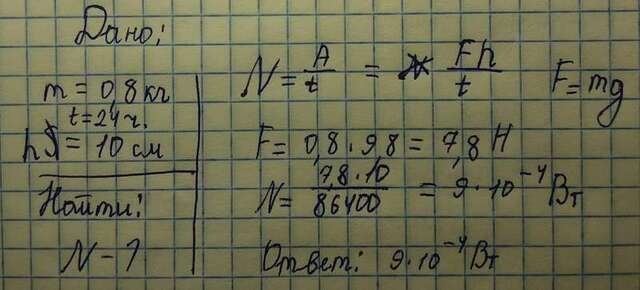 Дано:
m = 0,8 кг
t = 24 ч.
h = 10 см
Найти:
N - ?
N = A/t = Fh/t F = mg
F = 0,8 · 9,8 = 7,8 Н
N = 7,8 · 10 / 86400 = 9 · 10⁻⁴ Вт
Ответ: 9 · 10⁻⁴ Вт